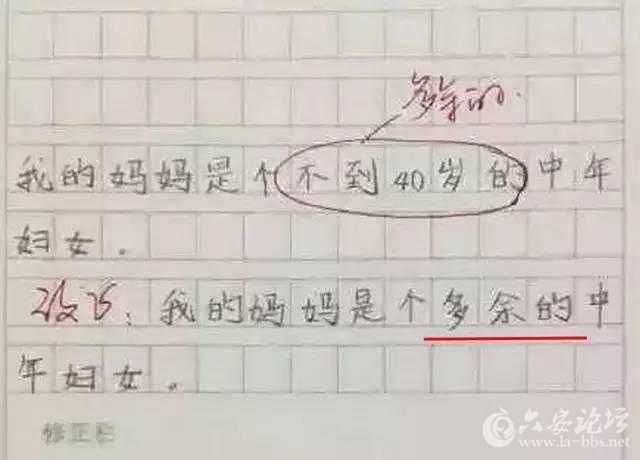 多余的.
我的妈妈是个不到40岁的中年
妇女。
改为：我的妈妈是个多余的中
年妇女。
修正栏
六安论坛
www.la-bbs.net